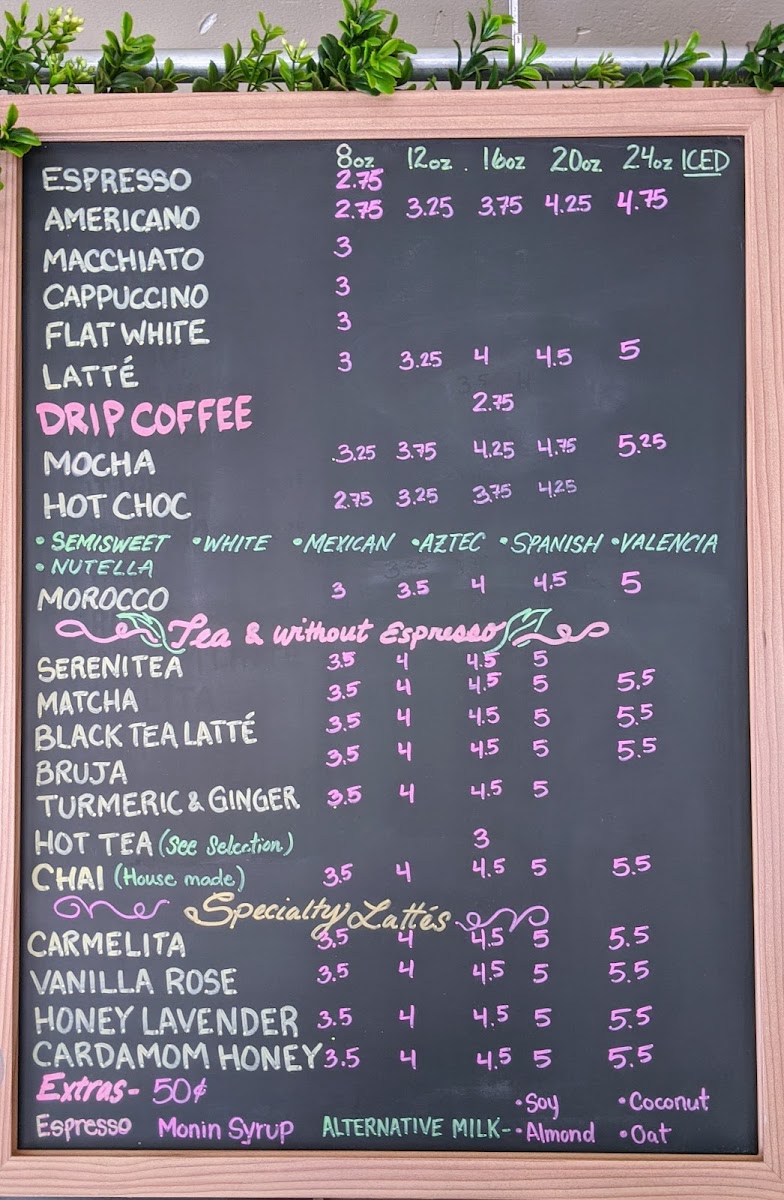 8oz 12oz. 16oz 20oz 24oz ICED
ESPRESSO 2.75
AMERICANO 2.75 3.25 3.75 4.25 4.75
MACCHIATO 3
CAPPUCCINO 3
FLAT WHITE 3
LATTÉ 3 3.25 4 4.5 5
DRIP COFFEE 2.75
MOCHA .3.25 3.75 4.25 4.75 5.25
HOT CHOC 2.75 3.25 3.75 4.25
• SEMISWEET • WHITE • MEXICAN • AZTEC • SPANISH • VALENCIA
• NUTELLA
MOROCCO 3 3.5 4 4.5 5
Tea & without Espresso
SERENITEA 3.5 4 4.5 5
MATCHA 3.5 4 4.5 5 5.5
BLACK TEA LATTÉ 3.5 4 4.5 5 5.5
BRUJA 3.5 4 4.5 5 5.5
TURMERIC & GINGER 3.5 4 4.5 5
HOT TEA (See Selection) 3
CHAI (House made) 3.5 4 4.5 5 5.5
Specialty Lattés
CARMELITA 3.5 4 4.5 5 5.5
VANILLA ROSE 3.5 4 4.5 5 5.5
HONEY LAVENDER 3.5 4 4.5 5 5.5
CARDAMOM HONEY 3.5 4 4.5 5 5.5
Extras- 50¢
• Soy • Coconut
Espresso Monin Syrup ALTERNATIVE MILK- • Almond • Oat